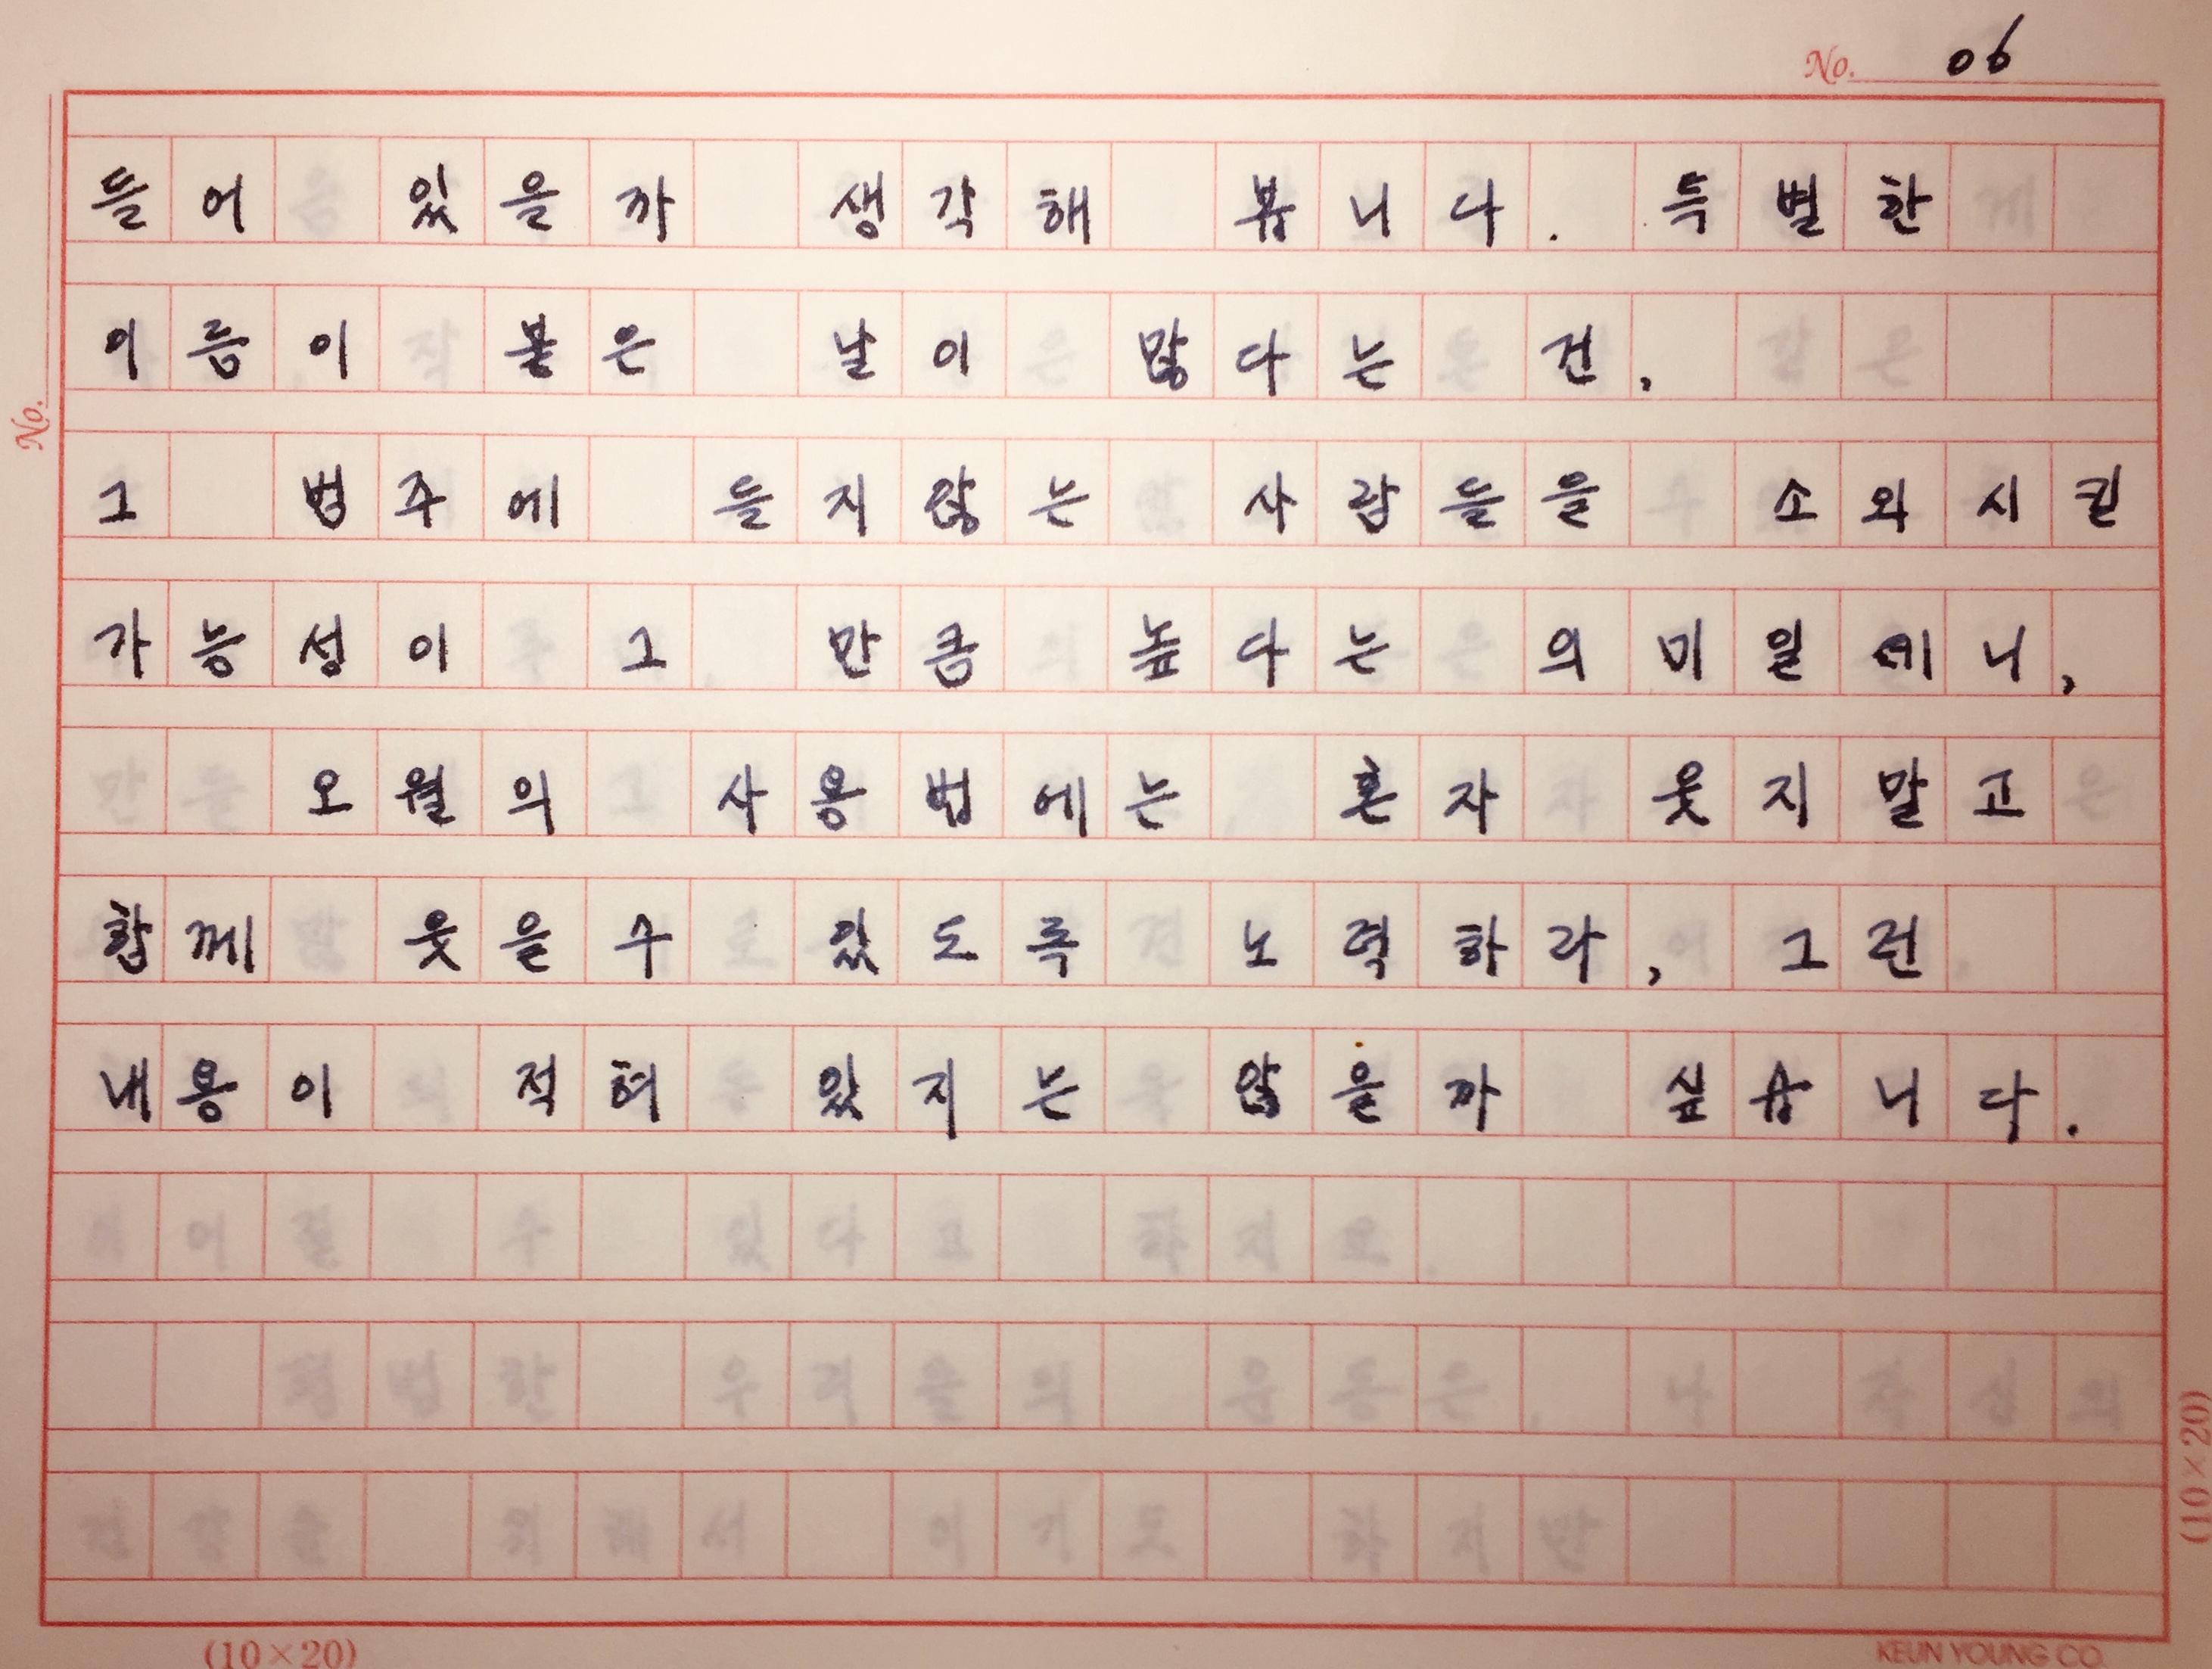 No. 06
No.
들어 있을까 생각해 봅니다. 특별한
이름이 붙은 날이 많다는 건,
그 범주에 들지않는 사람들을 소외시킬
가능성이 그 만큼 높다는 의미일테니,
오월의 사용법에는 혼자 웃지말고
함께 웃을수 있도록 노력하라, 그런
내용이 적혀 있지는 않을까 싶습니다.
(10×20)
(10×20)
KEUN YOUNG CO.